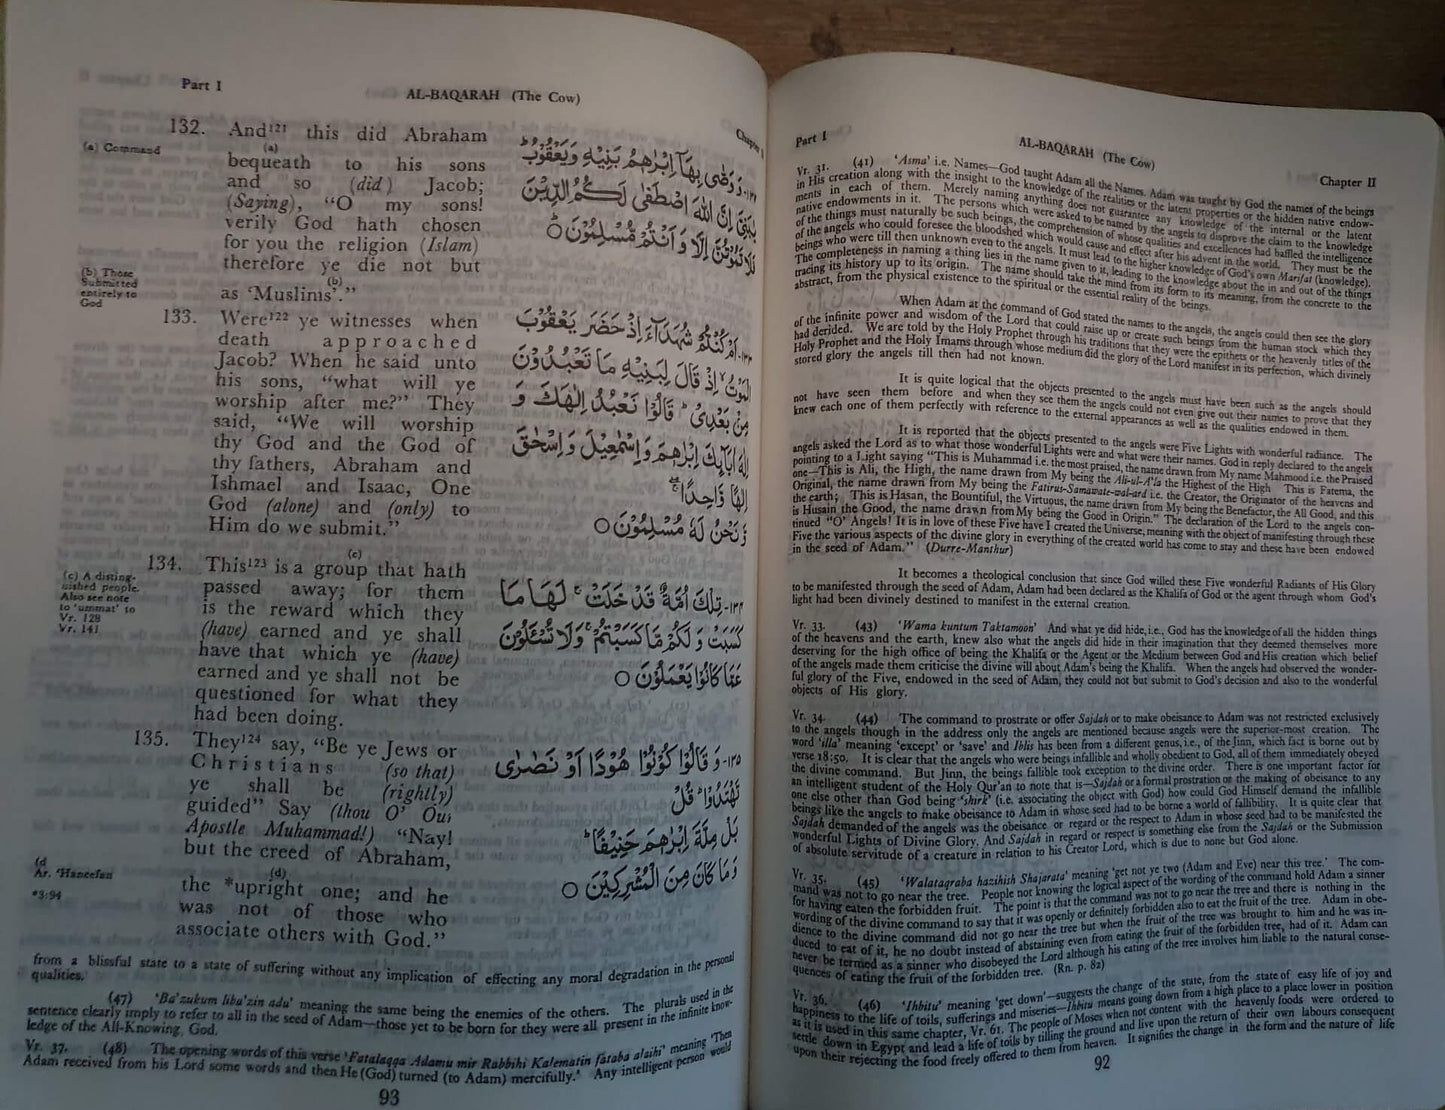 Part I
AL-BAQARAH (The Cow)
Chapter II
Vr. 31. (41) 'Asma' i.e. Names—God taught Adam all the Names. Adam was taught by God the names of the beings
in His creation along with the insight to the knowledge of the realities or the latent properties or the hidden native endow-
ments in each of them. Merely naming anything does not guarantee any knowledge of the internal or the latent
native endowments in it. The persons which were asked to be named by the angels to disprove the claim to the knowledge
of the things must naturally be such beings, the comprehension of whose qualities and excellences had baffled the intelligence
of the angels who could foresee the bloodshed which would cause and effect after his advent in the world. They must be the
beings who were till then unknown even to the angels. It must lead to the higher knowledge of God's own Marifat (knowledge).
The completeness in naming a thing lies in the name given to it, leading to the knowledge about the in and out of the things
tracing its history up to its origin. The name should take the mind from its form to its meaning, from the concrete to the
abstract, from the physical existence to the spiritual or the essential reality of the beings.
When Adam at the command of God stated the names to the angels, the angels could then see the glory
of the infinite power and wisdom of the Lord that could raise up or create such beings from the human stock which they
had derided. We are told by the Holy Prophet through his traditions that they were the epithets or the heavenly titles of the
Holy Prophet and the Holy Imams through whose medium did the glory of the Lord manifest in its perfection, which divinely
stored glory the angels till then had not known.
It is quite logical that the objects presented to the angels must have been such as the angels should
not have seen them before and when they see them the angels could not even give out their names to prove that they
knew each one of them perfectly with reference to the external appearances as well as the qualities endowed in them.
It is reported that the objects presented to the angels were Five Lights with wonderful radiance. The
angels asked the Lord as to what those wonderful Lights were and what were their names. God in reply declared to the angels
pointing to a Light saying "This is Muhammad i.e. the most praised, the name drawn from My name Mahmood i.e. the Praised
one—This is Ali, the High, the name drawn from My being the Ali-ul-A'la the Highest of the High This is Fatema, the
Original, the name drawn from My being the Fatirus-Samawate-wal-ard i.e. the Creator, the Originator of the heavens and
the earth; This is Hasan, the Bountiful, the Virtuous, the name drawn from My being the Benefactor, the All Good, and this
is Husain the Good, the name drawn from My being the Good in Origin." The declaration of the Lord to the angels con-
tinued "O' Angels! It is in love of these Five have I created the Universe, meaning with the object of manifesting through these
Five the various aspects of the divine glory in everything of the created world has come to stay and these have been endowed
in the seed of Adam." (Durre-Manthur)
It becomes a theological conclusion that since God willed these Five wonderful Radiants of His Glory
to be manifested through the seed of Adam, Adam had been declared as the Khalifa of God or the agent through whom God's
light had been divinely destined to manifest in the external creation.
Vr. 33. (43) 'Wama kuntum Taktamoon' And what ye did hide, i.e., God has the knowledge of all the hidden things
of the heavens and the earth, knew also what the angels did hide in their imagination that they deemed themselves more
deserving for the high office of being the Khalifa or the Agent or the Medium between God and His creation which belief
of the angels made them criticise the divine will about Adam's being the Khalifa. When the angels had observed the wonder-
ful glory of the Five, endowed in the seed of Adam, they could not but submit to God's decision and also to the wonderful
objects of His glory.
Vr. 34. (44) The command to prostrate or offer Sajdah or to make obeisance to Adam was not restricted exclusively
to the angels though in the address only the angels are mentioned because angels were the superior-most creation. The
word 'illa' meaning 'except' or 'save' and Iblis has been from a different genus, i.e., of the Jinn, which fact is borne out by
verse 18:50. It is clear that the angels who were beings infallible and wholly obedient to God, all of them immediately obeyed
the divine command. But Jinn, the beings fallible took exception to the divine order. There is one important factor for
an intelligent student of the Holy Qur'an to note that is—Sajdah or a formal prostration or the making of obeisance to any
one else other than God being 'shirk' (i.e. associating the object with God) how could God Himself demand the infallible
beings like the angels to make obeisance to Adam in whose seed had to be borne a world of fallibility. It is quite clear that
Sajdah demanded of the angels was the obeisance or regard or the respect to Adam in whose seed had to be manifested the
wonderful Lights of Divine Glory. And Sajdah in regard or respect is something else from the Sajdah or the Submission
of absolute servitude of a creature in relation to his Creator Lord, which is due to none but God alone.
Vr. 35. (45) 'Walataqraba hazihish Shajarata' meaning 'get not ye two (Adam and Eve) near this tree.' The com-
mand was not to go near the tree. People not knowing the logical aspect of the wording of the command hold Adam a sinner
for having eaten the forbidden fruit. The point is that the command was not to go near the tree and there is nothing in the
wording of the divine command to say that it was openly or definitely forbidden also to eat the fruit of the tree. Adam in obe-
dience to the divine command did not go near the tree but when the fruit of the tree was brought to him and he was in-
duced to eat of it, he no doubt instead of abstaining even from eating the fruit of the forbidden tree, had of it. Adam can
never be termed as a sinner who disobeyed the Lord although his eating of the tree involves him liable to the natural conse-
quences of eating the fruit of the forbidden tree. (Rn. p. 82)
Vr. 36. (46) 'Ihbitu' meaning 'get down'—suggests the change of the state, from the state of easy life of joy and
happiness to the life of toils, sufferings and miseries—Ihbitu means going down from a high place to a place lower in position
as it is used in this same chapter, Vr. 61. The people of Moses when not content with the heavenly foods were ordered to
settle down in Egypt and lead a life of toils by tilling the ground and live upon the return of their own labours consequent
upon their rejecting the food freely offered to them from heaven. It signifies the change in the form and the nature of life
92
Part I
AL-BAQARAH (The Cow)
Chapter
132. And¹²¹ this did Abraham
(a)
bequeath to his sons
and so (did) Jacob;
(Saying), "O my sons!
verily God hath chosen
for you the religion (Islam)
therefore ye die not but
(b)
as 'Muslims'."
(a) Command
(b) Those
Submitted
entirely to
God
١٣٢- وَ وَصّٰى بِهَاۤ اِبْرٰهٖمُ بَنِيْهِ وَيَعْقُوْبُ ؕ
يٰبَنِيَّ اِنَّ اللّٰهَ اصْطَفٰى لَكُمُ الدِّيْنَ
فَلَا تَمُوْتُنَّ اِلَّا وَ اَنْتُمْ مُّسْلِمُوْنَ ؕ ○
133. Were¹²² ye witnesses when
death approached
Jacob? When he said unto
his sons, "what will ye
worship after me?" They
said, "We will worship
thy God and the God of
thy fathers, Abraham and
Ishmael and Isaac, One
God (alone) and (only) to
Him do we submit."
١٣٣- اَمْ كُنْتُمْ شُهَدَآءَ اِذْ حَضَرَ يَعْقُوْبَ
الْمَوْتُ ۙ اِذْ قَالَ لِبَنِيْهِ مَا تَعْبُدُوْنَ
مِنْ بَعْدِيْ ؕ قَالُوْا نَعْبُدُ اِلٰهَكَ وَ
اِلٰهَ اٰبَآئِكَ اِبْرٰهٖمَ وَ اِسْمٰعِيْلَ وَ اِسْحٰقَ
اِلٰهًا وَّاحِدًا ۚۖ
وَّ نَحْنُ لَهٗ مُسْلِمُوْنَ ○
134. This¹²³ is a group that hath
(c)
passed away; for them
is the reward which they
(have) earned and ye shall
have that which ye (have)
earned and ye shall not be
questioned for what they
had been doing.
(c) A disting-
uished people.
Also see note
to 'ummat' to
Vr. 128
Vr. 141
١٣٤- تِلْكَ اُمَّةٌ قَدْ خَلَتْ ۚ لَهَا مَا
كَسَبَتْ وَ لَكُمْ مَّا كَسَبْتُمْ ۚ وَلَا تُسْئَلُوْنَ
عَمَّا كَانُوْا يَعْمَلُوْنَ ○
135. They¹²⁴ say, "Be ye Jews or
Christians (so that)
ye shall be (rightly)
guided" Say (thou O' Our
Apostle Muhammad!) "Nay!
but the creed of Abraham,
(d)
the *upright one; and he
was not of those who
associate others with God."
(d
Ar. 'Haneefan
*3:94
١٣٥- وَ قَالُوْا كُوْنُوْا هُوْدًا اَوْ نَصٰرٰى
تَهْتَدُوْا ؕ قُلْ
بَلْ مِلَّةَ اِبْرٰهٖمَ حَنِيْفًا ؕ
وَ مَا كَانَ مِنَ الْمُشْرِكِيْنَ ○
from a blissful state to a state of suffering without any implication of effecting any moral degradation in the personal
qualities.
(47) 'Ba'zukum liba'zin adu' meaning the same being the enemies of the others. The plurals used in the
sentence clearly imply to refer to all in the seed of Adam—those yet to be born for they were all present in the infinite know-
ledge of the All-Knowing, God.
Vr. 37. (48) The opening words of this verse 'Fatalaqqa Adamu mir Rabbihi Kalematin fataba alaihi' meaning 'Then
Adam received from his Lord some words and then He (God) turned (to Adam) mercifully.' Any intelligent person would
93